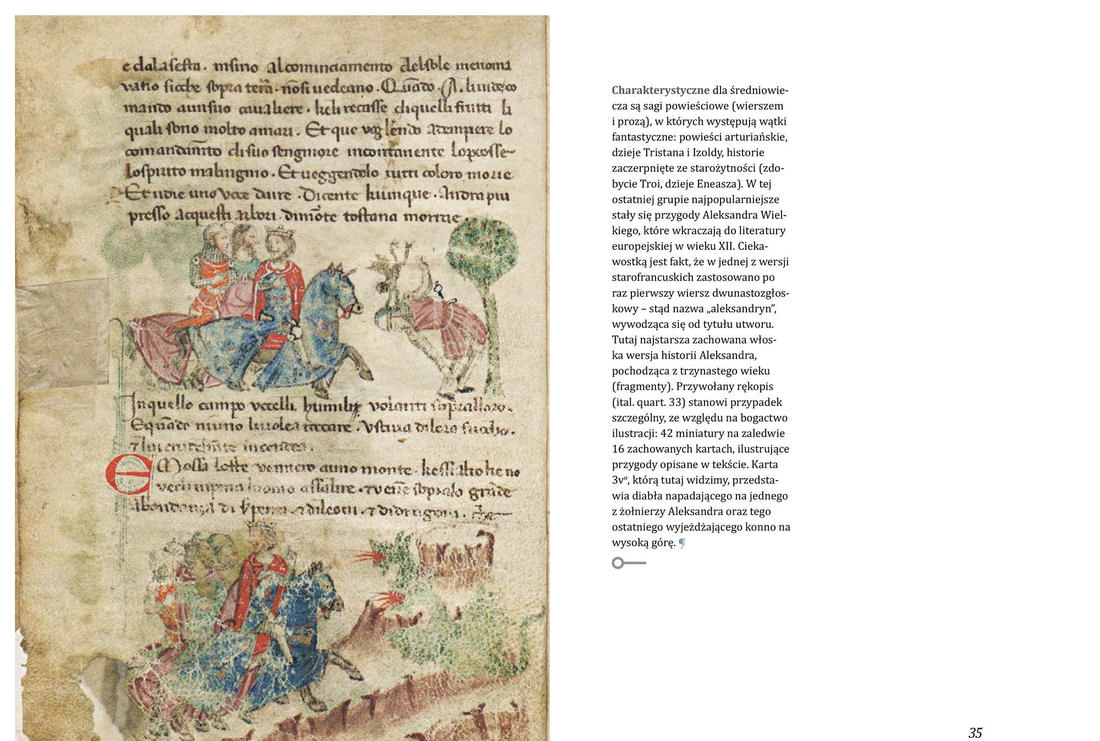 e dalasesta . insino alcominciamento delsole menoma
vano sicche sopra tera . nosi uedeano . Quado . A . luideco
mando aunsuo caualiere . keli recasse diquelli frutti li
quali sono molto amari . Et que uoglendo atempiere lo
comandamito disuo sengniore incontanente lopcosse
lospirito malingnio . Et ueggendolo tutti coloro morire
Et udie uno uoce dire . Dicente kiunque . Andra piu
presso acquesti albori . dimote tostana morrae .
Inquello campo uccelli humili uolanti
E quado niuno
E Mossa loste uennero auno monte .
Charakterystyczne dla średniowie-
cza są sagi powieściowe (wierszem
i prozą), w których występują wątki
fantastyczne: powieści arturiańskie,
dzieje Tristana i Izoldy, historie
zaczerpnięte ze starożytności (zdo-
bycie Troi, dzieje Eneasza). W tej
ostatniej grupie najpopularniejsze
stały się przygody Aleksandra Wiel-
kiego, które wkraczają do literatury
europejskiej w wieku XII. Cieka-
wostką jest fakt, że w jednej z wersji
starofrancuskich zastosowano po
raz pierwszy wiersz dwunastozgłos-
kowy – stąd nazwa „aleksandryn”,
wywodząca się od tytułu utworu.
Tutaj najstarsza zachowana włos-
ka wersja historii Aleksandra,
pochodząca z trzynastego wieku
(fragmenty). Przywołany rękopis
(ital. quart. 33) stanowi przypadek
szczególny, ze względu na bogactwo
ilustracji: 42 miniatury na zaledwie
16 zachowanych kartach, ilustrujące
przygody opisane w tekście. Karta
3vº, którą tutaj widzimy, przedsta-
wia diabła napadającego na jednego
z żołnierzy Aleksandra oraz tego
ostatniego wyjeżdżającego konno na
wysoką górę. ¶
35